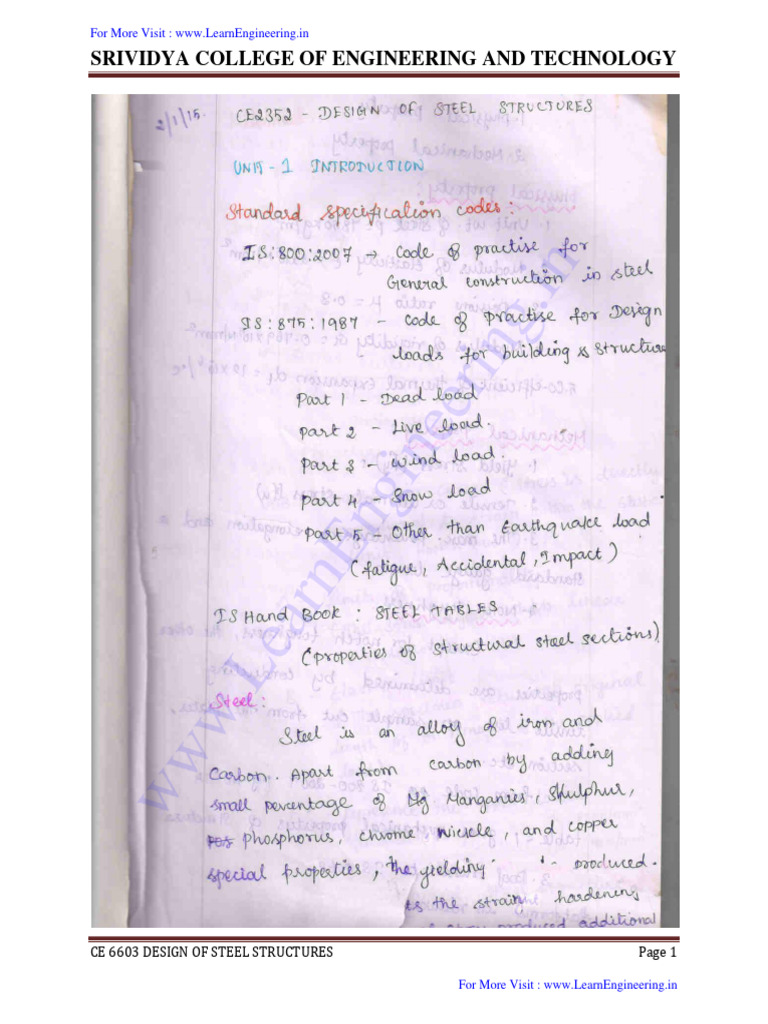 For More Visit : www.LearnEngineering.in
SRIVIDYA COLLEGE OF ENGINEERING AND TECHNOLOGY
2/1/15.
CE2352 - DESIGN OF STEEL STRUCTURES
UNIT - 1 INTRODUCTION
Standard specification codes :
IS:800:2007 → Code of practise for
General construction in steel
IS:875:1987 - Code of Practise for Design
loads for building & structure
Part 1 - Dead load
Part 2 - Live load.
Part 3 - Wind load.
Part 4 - Snow load
Part 5 - Other than Earthquake load
(fatigue, Accidental, Impact)
IS Hand Book : STEEL TABLES
(properties of structural steel sections)
Steel :
Steel is an alloy of iron and
Carbon. Apart from carbon by adding
small percentage of Mg Manganies, Skulphur,
phosphorus, chrome nickle, and copper
special properties, the yielding produced.
is the strain hardening
produced additional
www.LearnEngineering.in
CE 6603 DESIGN OF STEEL STRUCTURES
Page 1
For More Visit : www.LearnEngineering.in